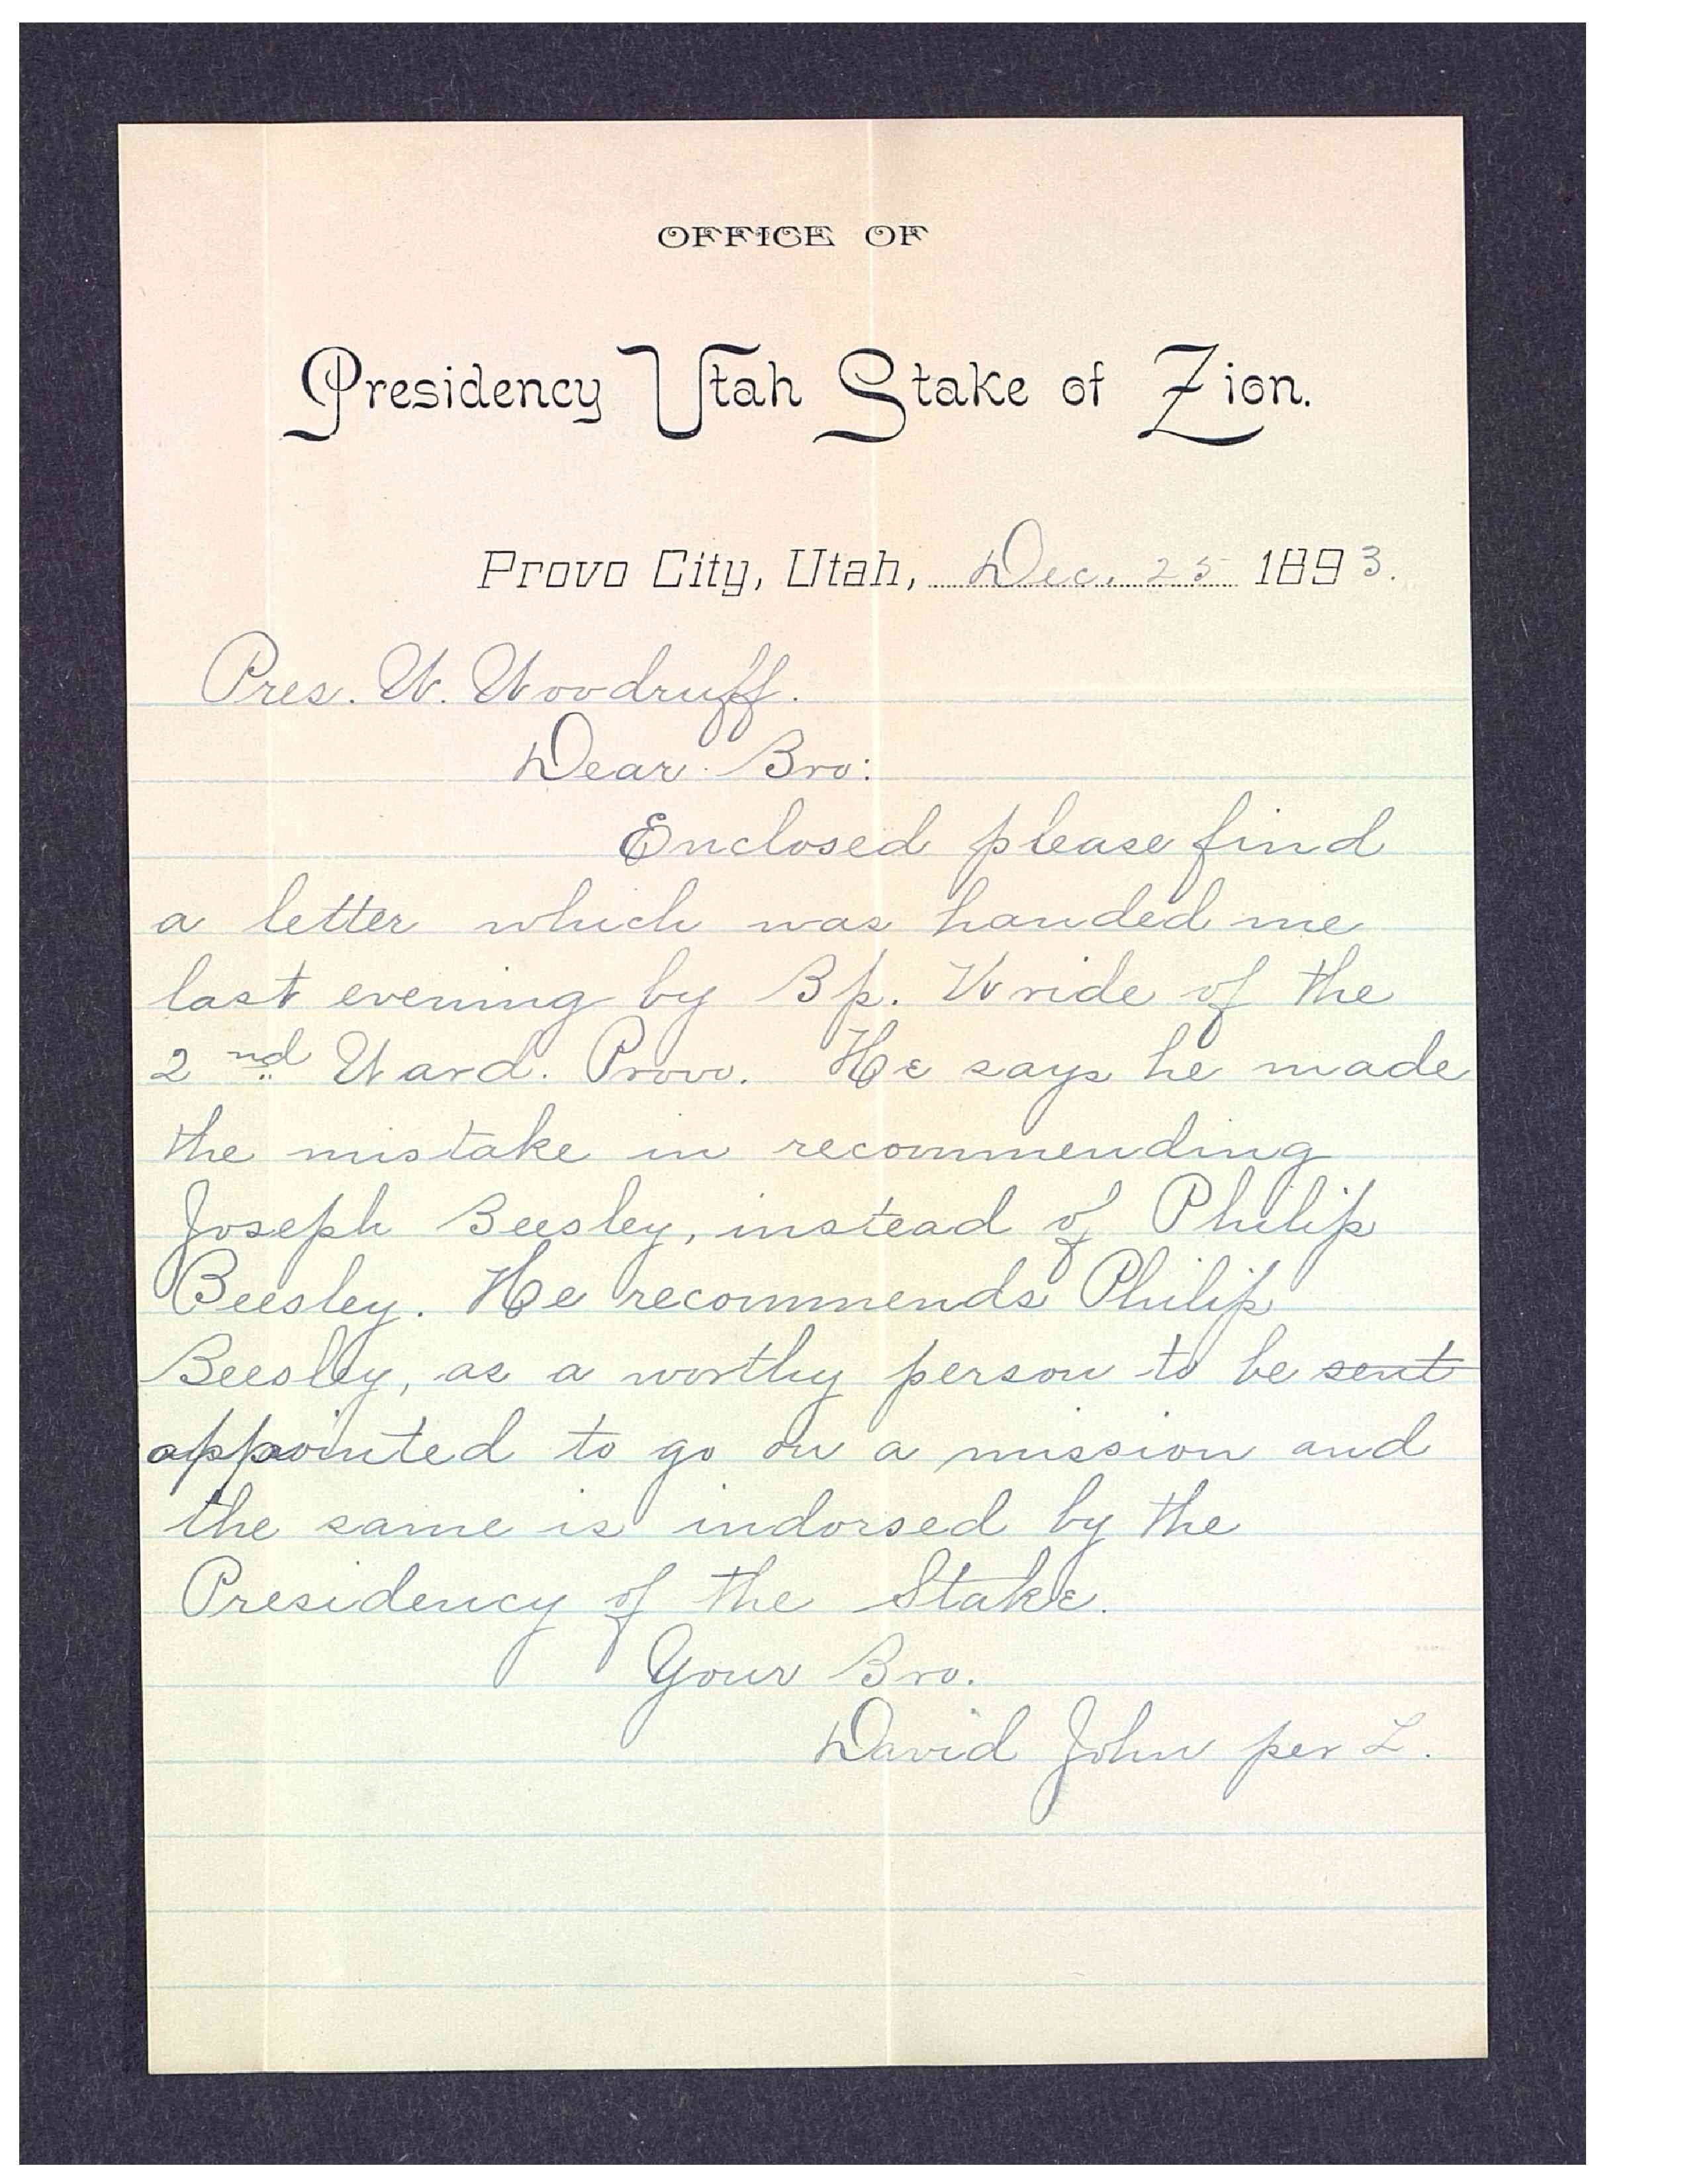 OFFICE OF
Presidency Utah Stake of Zion.
Provo City, Utah, Dec. 25 1893.
Pres. W. Woodruff.
Dear Bro:
Enclosed please find
a letter which was handed me
last evening by Bp. Wride of the
2nd Ward. Provo. He says he made
the mistake in recommending
Joseph Beesley, instead of Philip
Beesley. He recommends Philip
Beesley, as a worthy person to be sent
appointed to go on a mission and
the same is indorsed by the
Presidency of the Stake.
Your Bro.
David John per L.